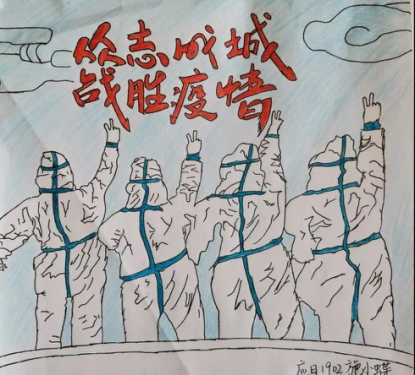 众志成城
战胜疫情
应日1902 施小蝶